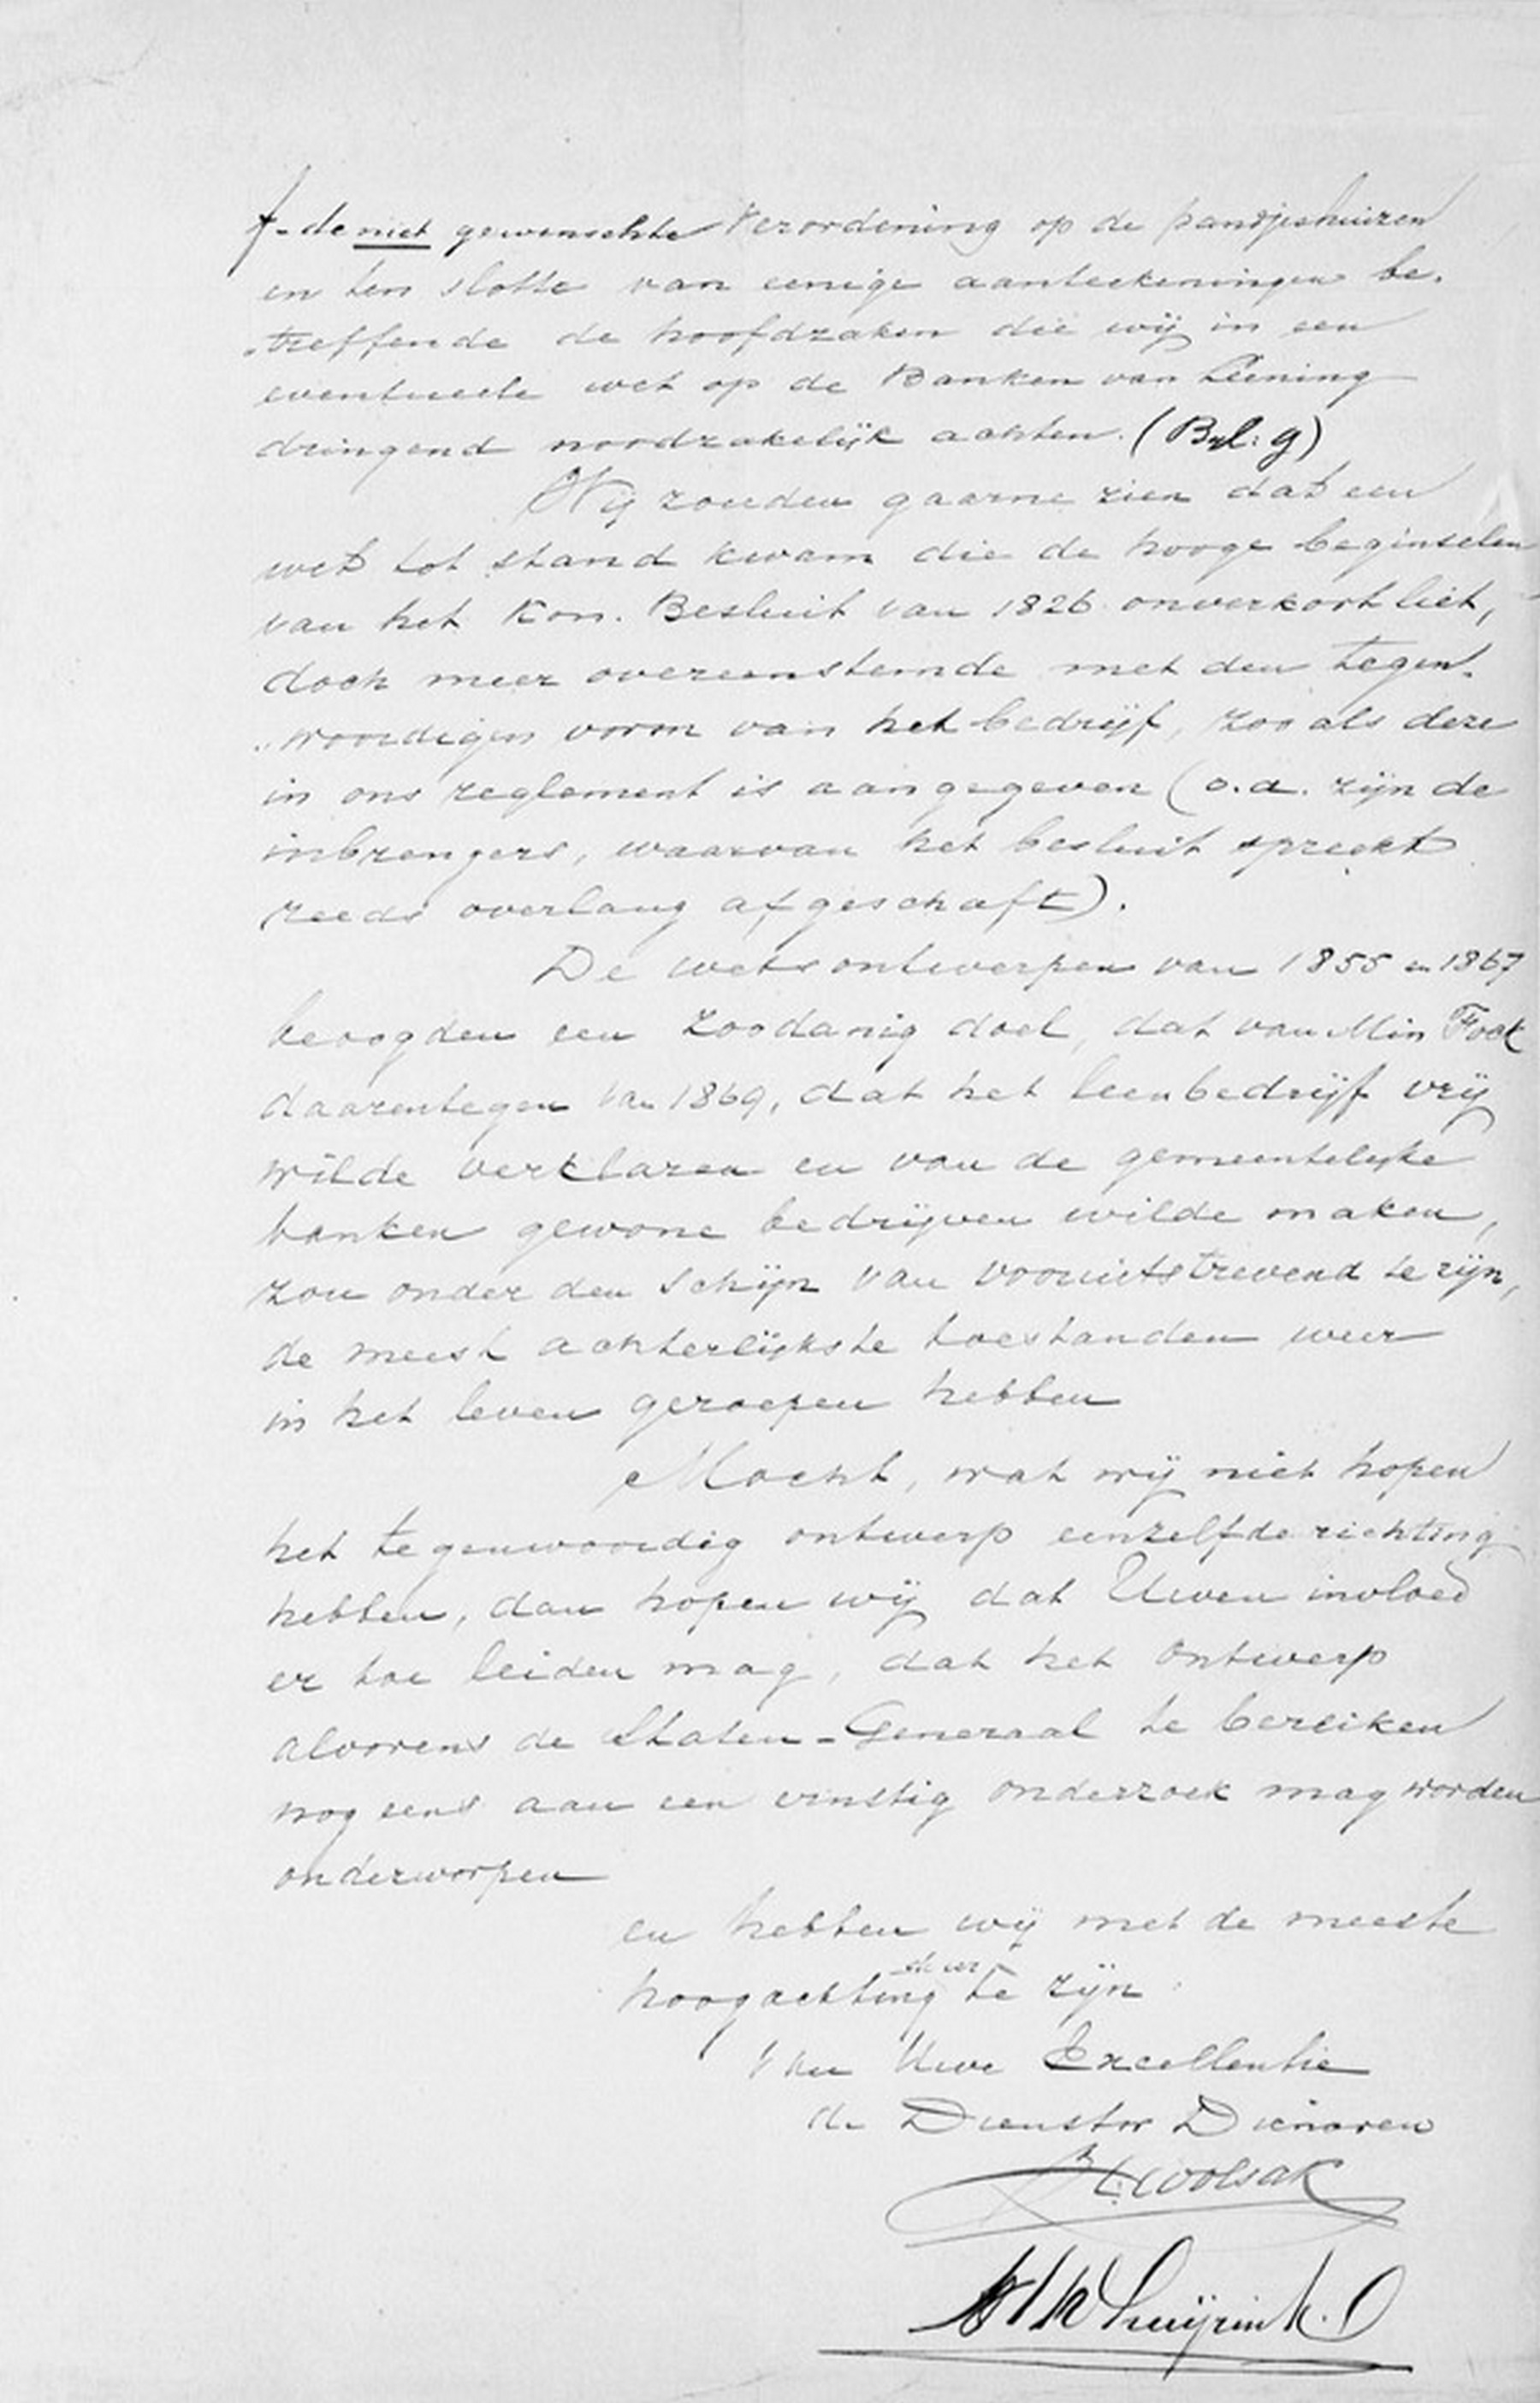 f. de niet gewenschte Verordening op de pandjeshuizen
en ten slotte van eenige aanteekeningen be-
treffende de hoofdzaken die wij in een
eventueele wet op de Banken van Leening
dringend noodzakelijk achten. (Byl: g)
Wij zouden gaarne zien dat een
wet tot stand kwam die de hooge beginselen
van het Kon. Besluit van 1826 onverkort liet,
doch meer overeenstemde met den tegen-
woordigen vorm van het bedrijf, zooals deze
in ons reglement is aangegeven (o.a. zijn de
inbrengers, waarvan het besluit spreekt
reeds overlang afgeschaft).
De wetsontwerpen van 1855 en 1867
beoogden een zoodanig doel, dat van Min Fock
daarentegen van 1869, dat het leenbedrijf vrij
wilde verklaren en van de gemeentelijke
banken gewone bedrijven wilde maken,
zou onder den schijn van vooruitstrevend te zijn,
de meest achterlijkste toestanden weer
in het leven geroepen hebben
Mocht, wat wij niet hopen
het tegenwoordig ontwerp eenzelfde richting
hebben, dan hopen wij dat Uwen invloed
er toe leiden mag, dat het ontwerp
alvorens de Staten-Generaal te bereiken
nog eens aan een ernstig onderzoek mag worden
onderworpen
en hebben wij met de meeste
hoogachting de eer te zijn
Van Uwe Excellentie
de Dienstw Dienaren
Woolsak